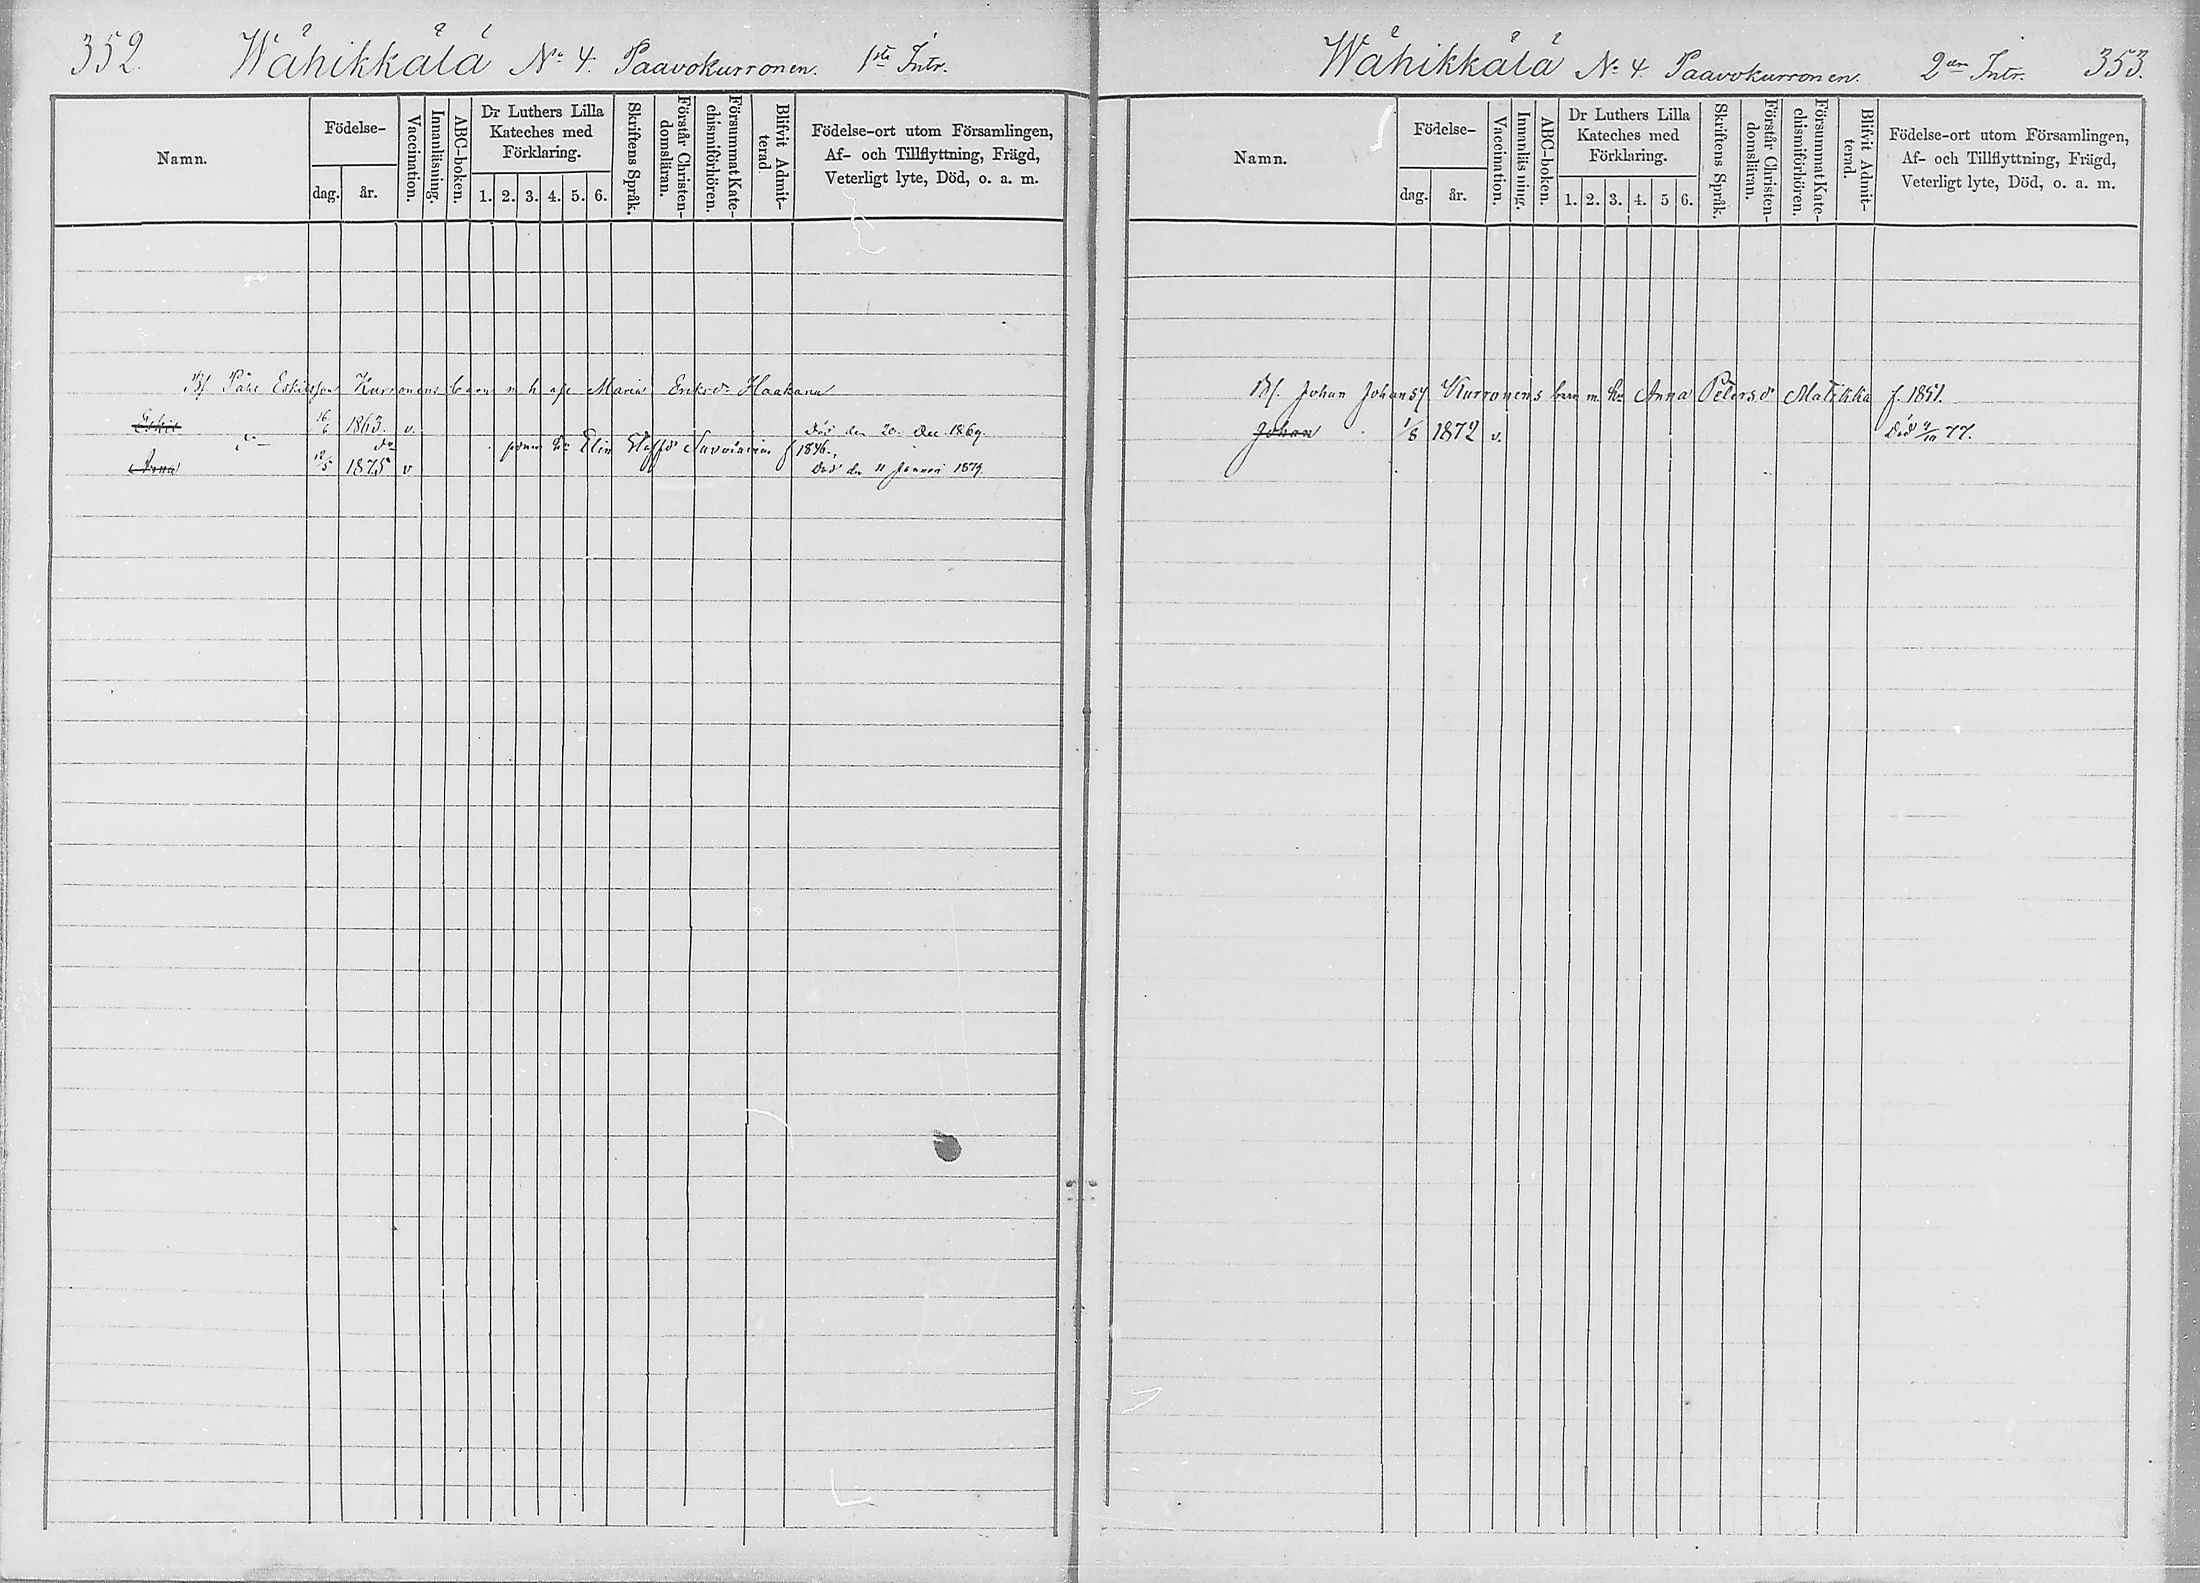 352. Wähikkälä No 4. Paavokurronen. 1sta Intr.
Namn.
Födelse-
dag.
år.
Vaccination.
Innanläsning.
ABC-boken.
Dr Luthers Lilla
Kateches med
Förklaring.
1. 2. 3. 4. 5. 6.
Skriftens Språk.
Förstår Christen-
domsläran.
Försummat Kate-
chismiförhören.
Blifvit Admit-
terad.
Födelse-ort utom Församlingen,
Af- och Tillflyttning, Frägd,
Veterligt lyte, Död, o. a. m.
Eskilsson Kurronens barn m. h. afl. Maria Eriksdr Haakana
Eskil 16/6 1863. v. Död den 20. Dec. 1869.
do hu Elin Staffsdr Savolainen f 1846.
Anna 12/5 1875 v Död den 11 Januari 1879.
Wähikkälä No 4 Paavokurronen. 2dra Intr. 353.
Namn.
Födelse-
dag.
år.
Vaccination.
Innanläsning.
ABC-boken.
Dr Luthers Lilla
Kateches med
Förklaring.
1. 2. 3. 4. 5 6.
Skriftens Språk.
Förstår Christen-
domsläran.
Försummat Kate-
chismiförhören.
Blifvit Admit-
terad.
Födelse-ort utom Församlingen,
Af- och Tillflyttning, Frägd,
Veterligt lyte, Död, o. a. m.
Johan Johanss Kurronens barn m. hu Anna Petersdr Matikka f. 1851.
Johan 1/8 1872 v. Död 9/10 77.